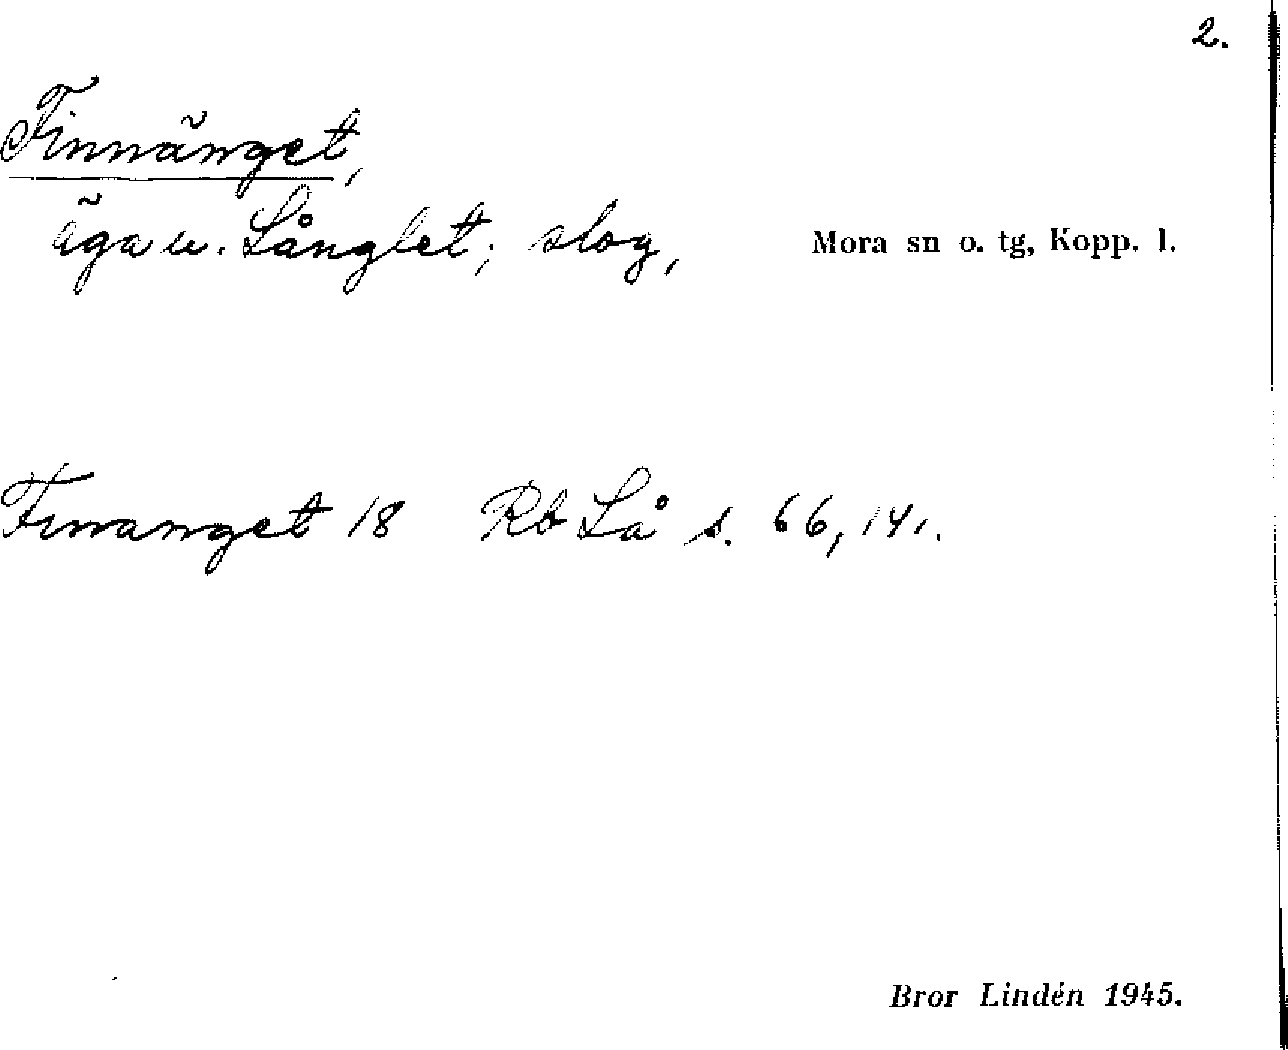 2.
Finnänget,
äga u. Långlet; slog, Mora sn o. tg, Kopp. l.
Finnanget 18 Rb Lå s. 66, 141.
Bror Lindén 1945.